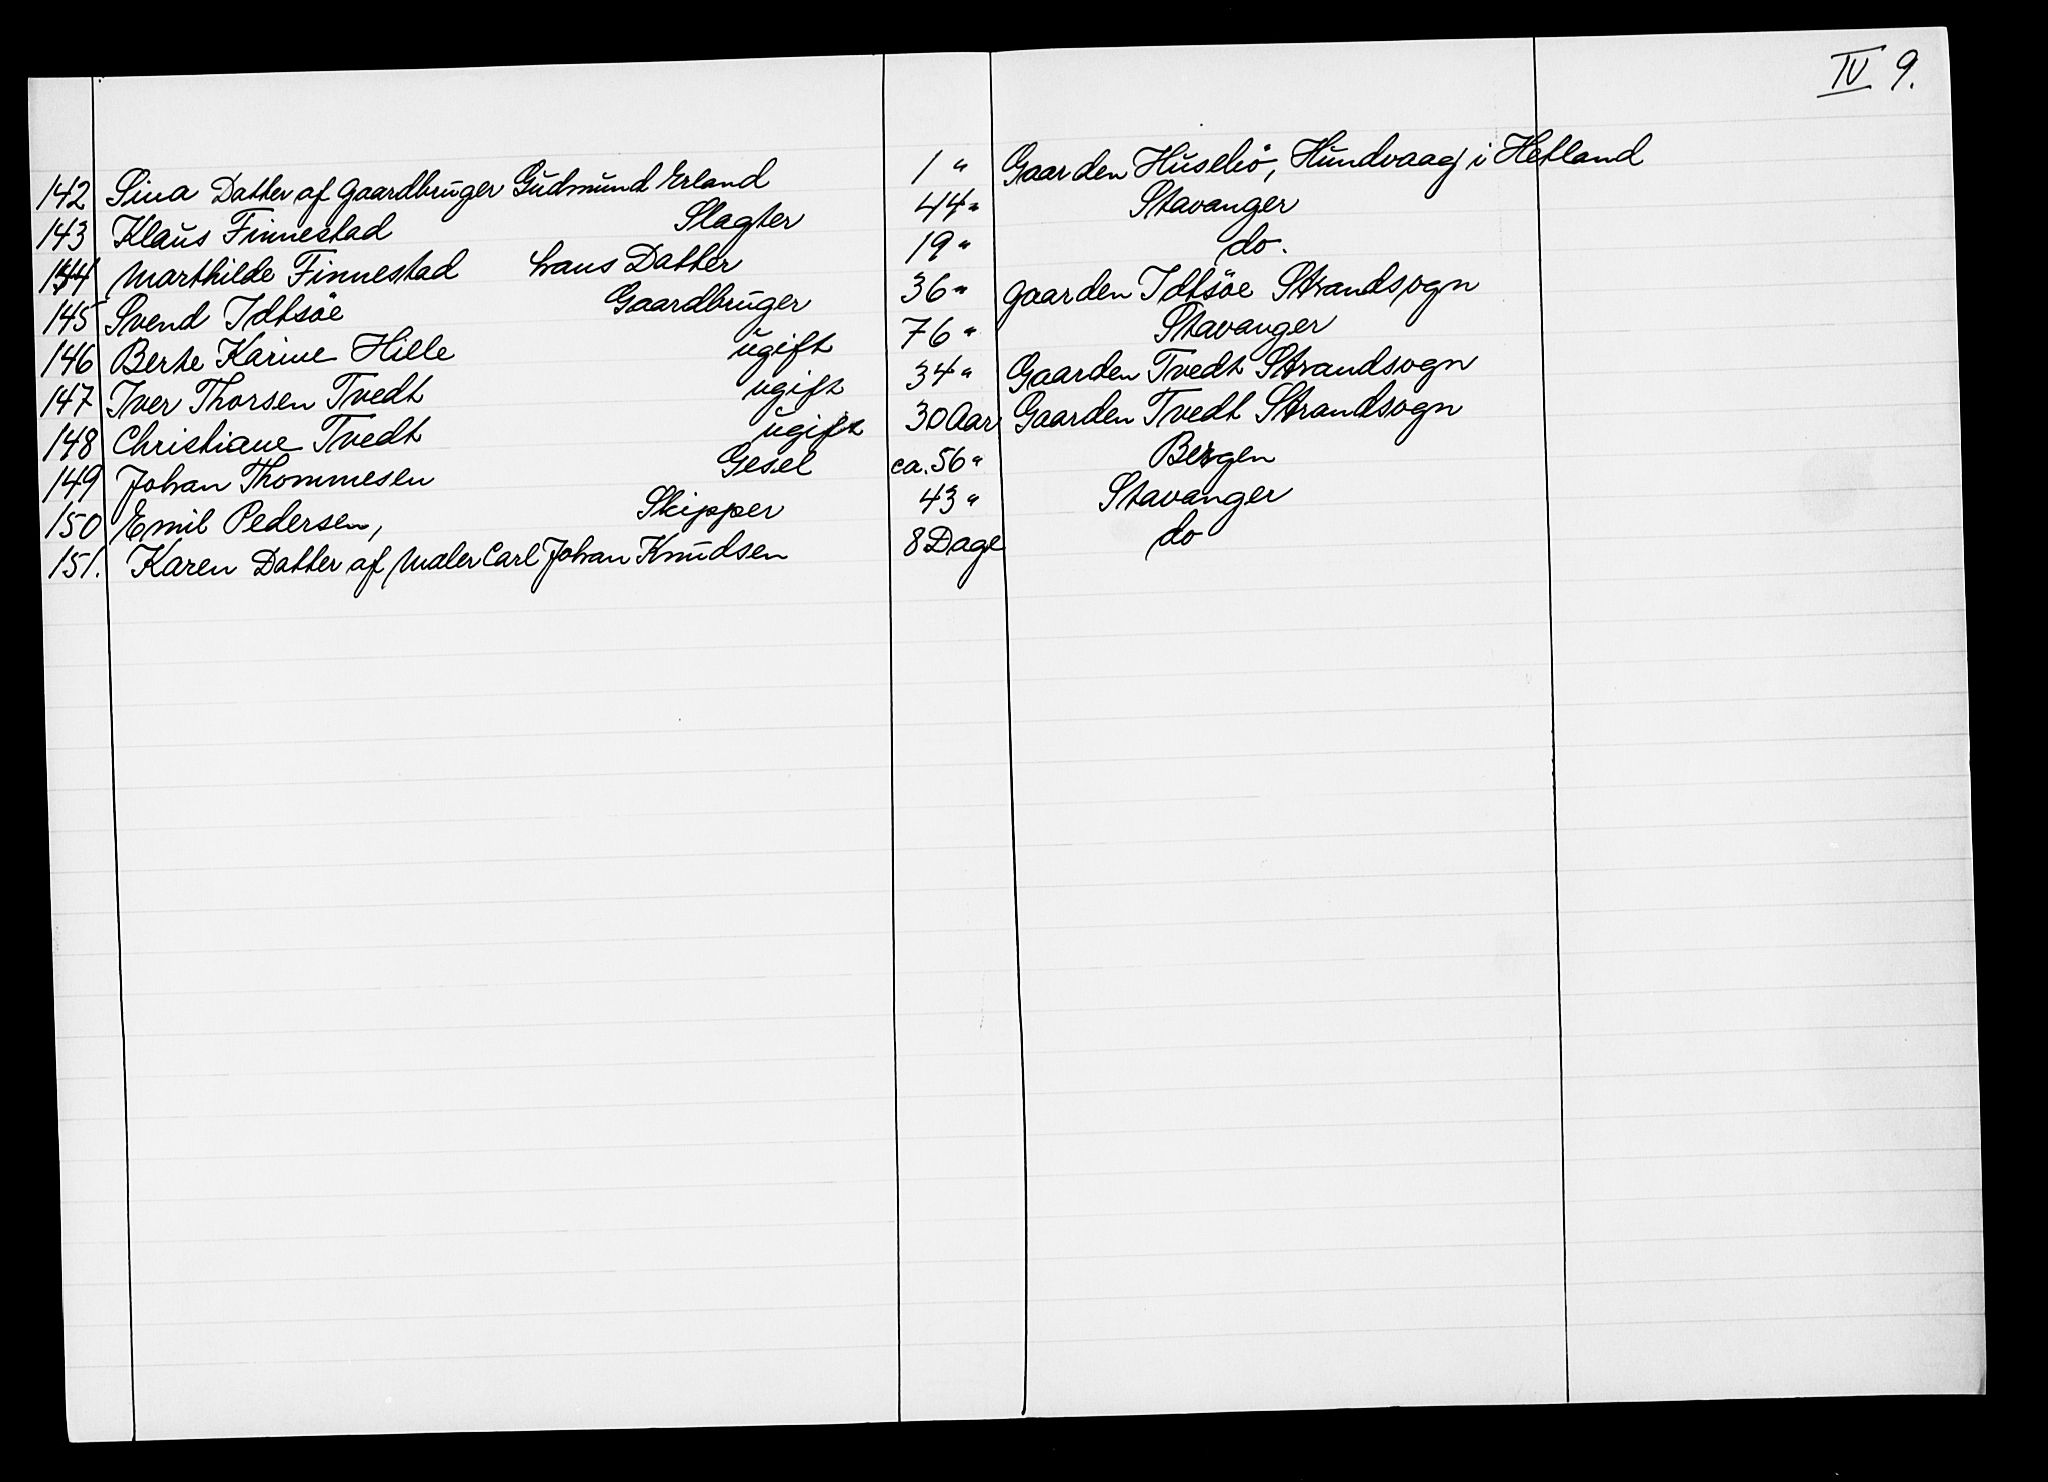 IV 9.
142 Sina Datter af gaardbruger Gudmund Erland 1 " Gaarden Husebö, Hundvaag i Hetland
143 Klaus Finnestad Slagter 44 " Stavanger
144 Marthilde Finnestad hans Datter 19 " do.
145 Svend Idtsöe Gaardbruger 36 " gaarden Idtsöe Strandsogn
146 Berte Karine Hille ugift 76 " Stavanger
147 Iver Thorsen Tvedt ugift 34 " Gaarden Tvedt Strandsogn
148 Christiane Tvedt ugift 30 Aar Gaarden Tvedt Strandsogn
149 Johan Thommesen Gesel ca. 56 " Bergen
150 Emil Pedersen, Skipper 43 " Stavanger
151. Karen Datter af Maler Carl Johan Knudsen 8 Dage do